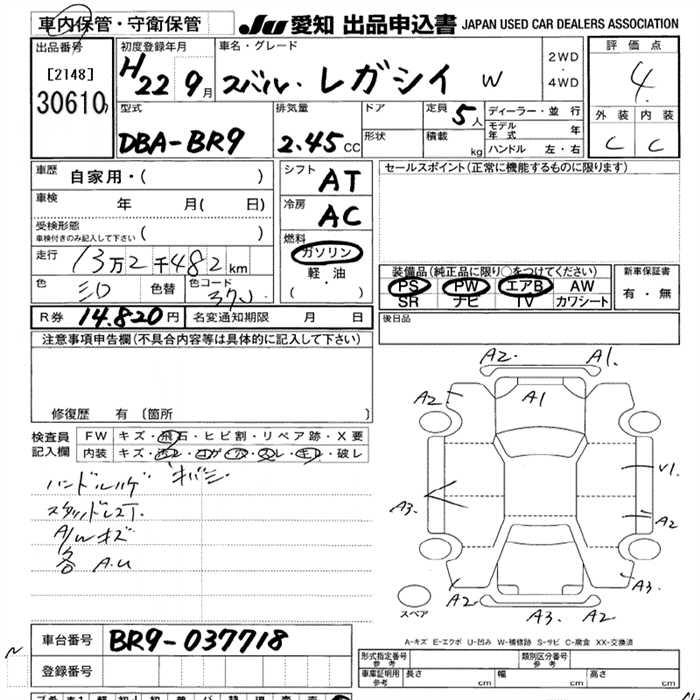 車内保管・守衛保管
JU 愛知 出品申込書 JAPAN USED CAR DEALERS ASSOCIATION
出品番号
[2148]
30610
初度登録年月
H22 9月
車名・グレード
スバル・レガシィ W
2WD
・
4WD
評価点
4
外装 内装
C C
型式
DBA-BR9
排気量
2.45CC
ドア
形状
定員 5人
積載 kg
ディーラー・並行
モデル年式 年
ハンドル 左・右
車歴
自家用・( )
車検 年 月( 日)
受検形態
車検付きのみ記入して下さい ( )
走行 13万2千482km
色 シロ 色替 色コード 37J
シフト AT
冷房 AC
燃料
ガソリン
軽油
・
( )
セールスポイント(正常に機能するものに限ります)
装備品(純正品に限り○をつけてください)
PS PW エアB AW
SR ナビ TV カワシート
新車保証書
有・無
R券 14.820円 名変通知期限 月 日
後日品
注意事項申告欄(不具合内容等は具体的に記入して下さい)
修復歴 有 [箇所 ]
検査員
記入欄
FW キズ・飛石・ヒビ割・リペア跡・X要
内装 キズ・汚レ・コゲ・穴・スレ・キレ・破レ
ハンドルハゲ
A/Wキズ
各 A.U
A2. A1.
A2 A1 A2
V1
A3. A2
A2 A3. A2 A3.
スペア
A-キズ E-エクボ U-凹み W-補修跡 S-サビ C-腐食 XX-交換済
車台番号 BR9-037718
登録番号
形式指定番号
参考
類別区分番号
参考
車庫証明用
参考
長さ cm 幅 cm 高さ cm